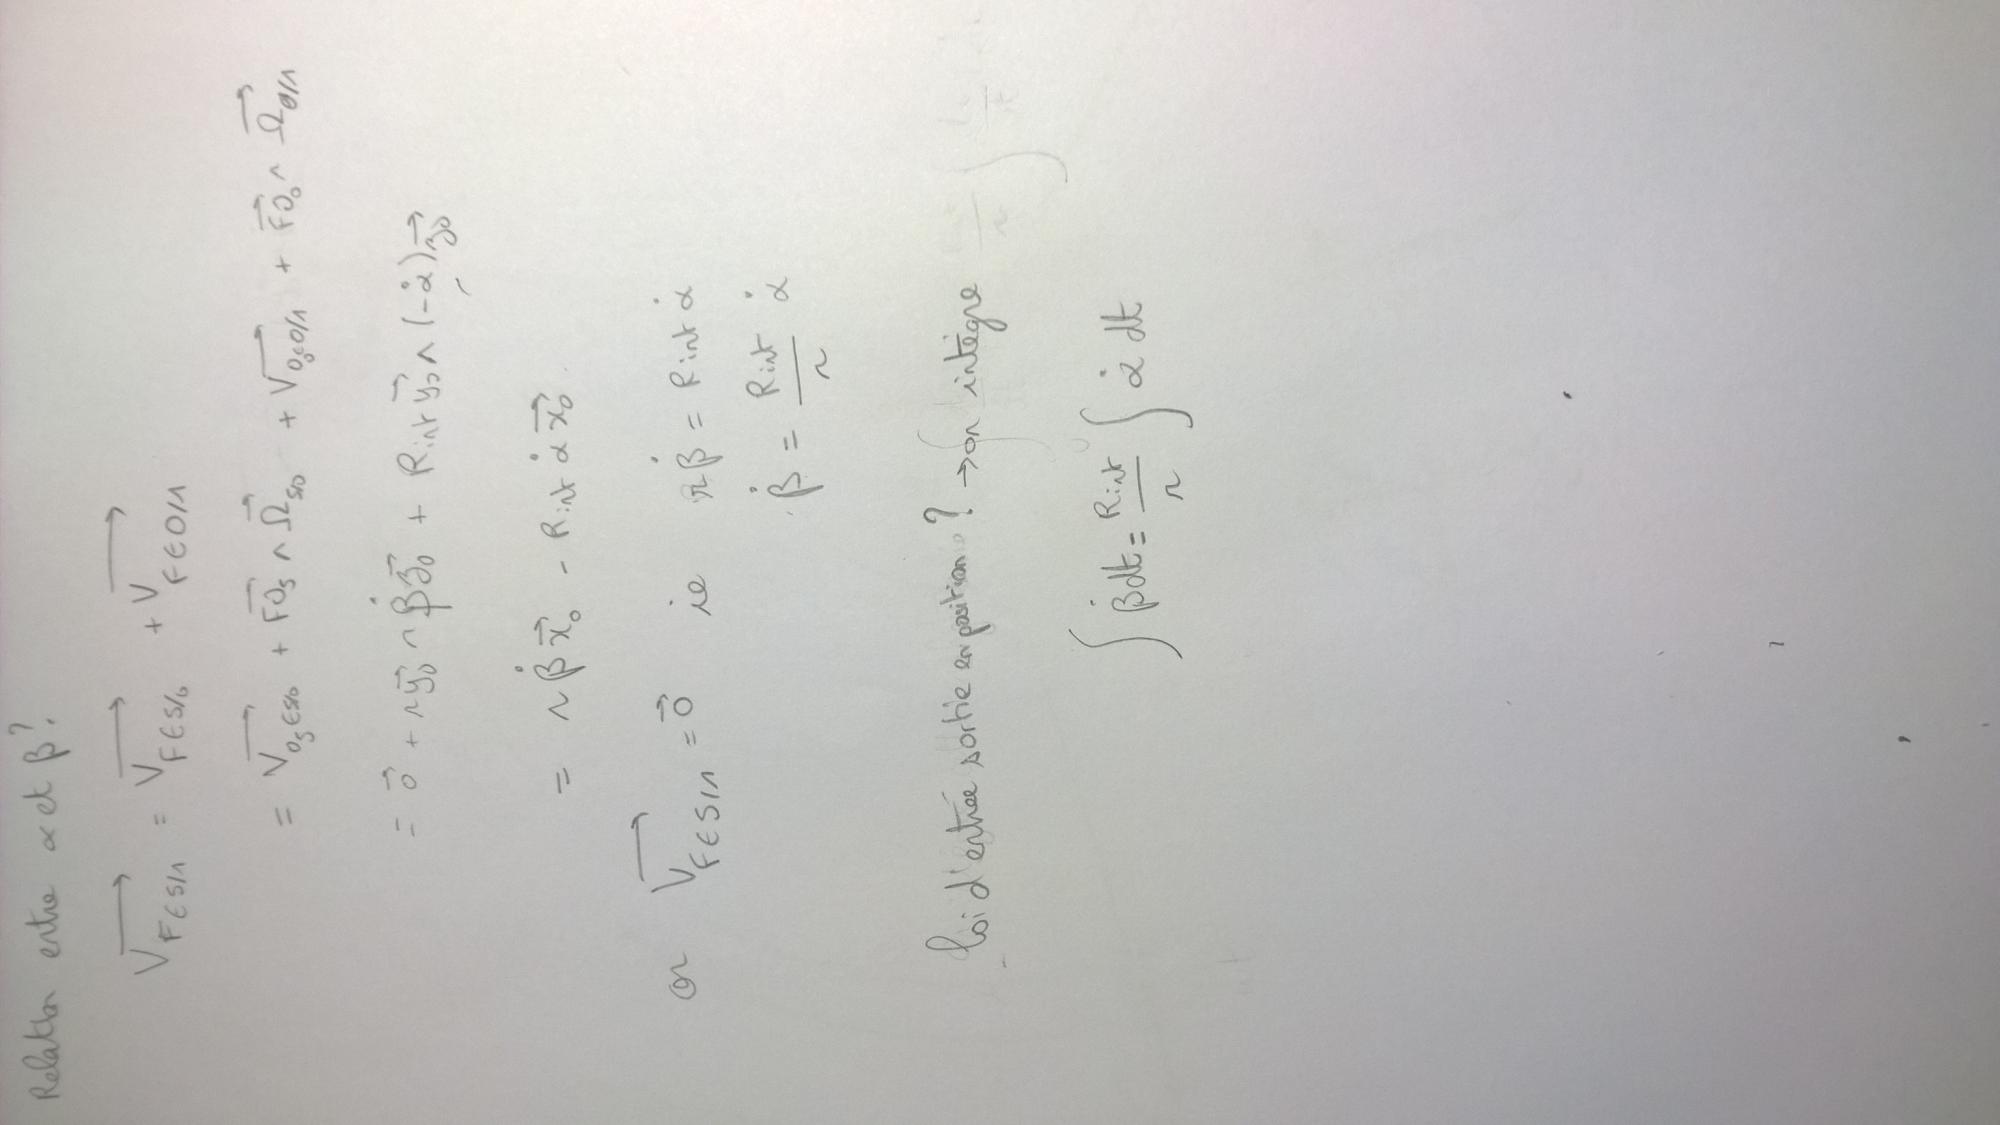 Relation entre α et β?
V⃗_{F∈S/1} = V⃗_{F∈S/0} + V⃗_{F∈0/1}
= V⃗_{O₅∈5/0} + FO₅⃗ ∧ Ω⃗_{5/0} + V⃗_{O₀∈0/1} + FO₀⃗ ∧ Ω⃗_{0/1}
= 0⃗ + r y₀⃗ ∧ β̇ z₀⃗ + Rint y₀⃗ ∧ (-α̇) z₀⃗
= r β̇ x₀⃗ - Rint α̇ x₀⃗.
or V⃗_{F∈S/1} = 0⃗ ie r β̇ = Rint α̇
β̇ = Rint/r α̇
loi d'entrée sortie en position? → on intègre
∫ β̇ dt = Rint/r ∫ α̇ dt